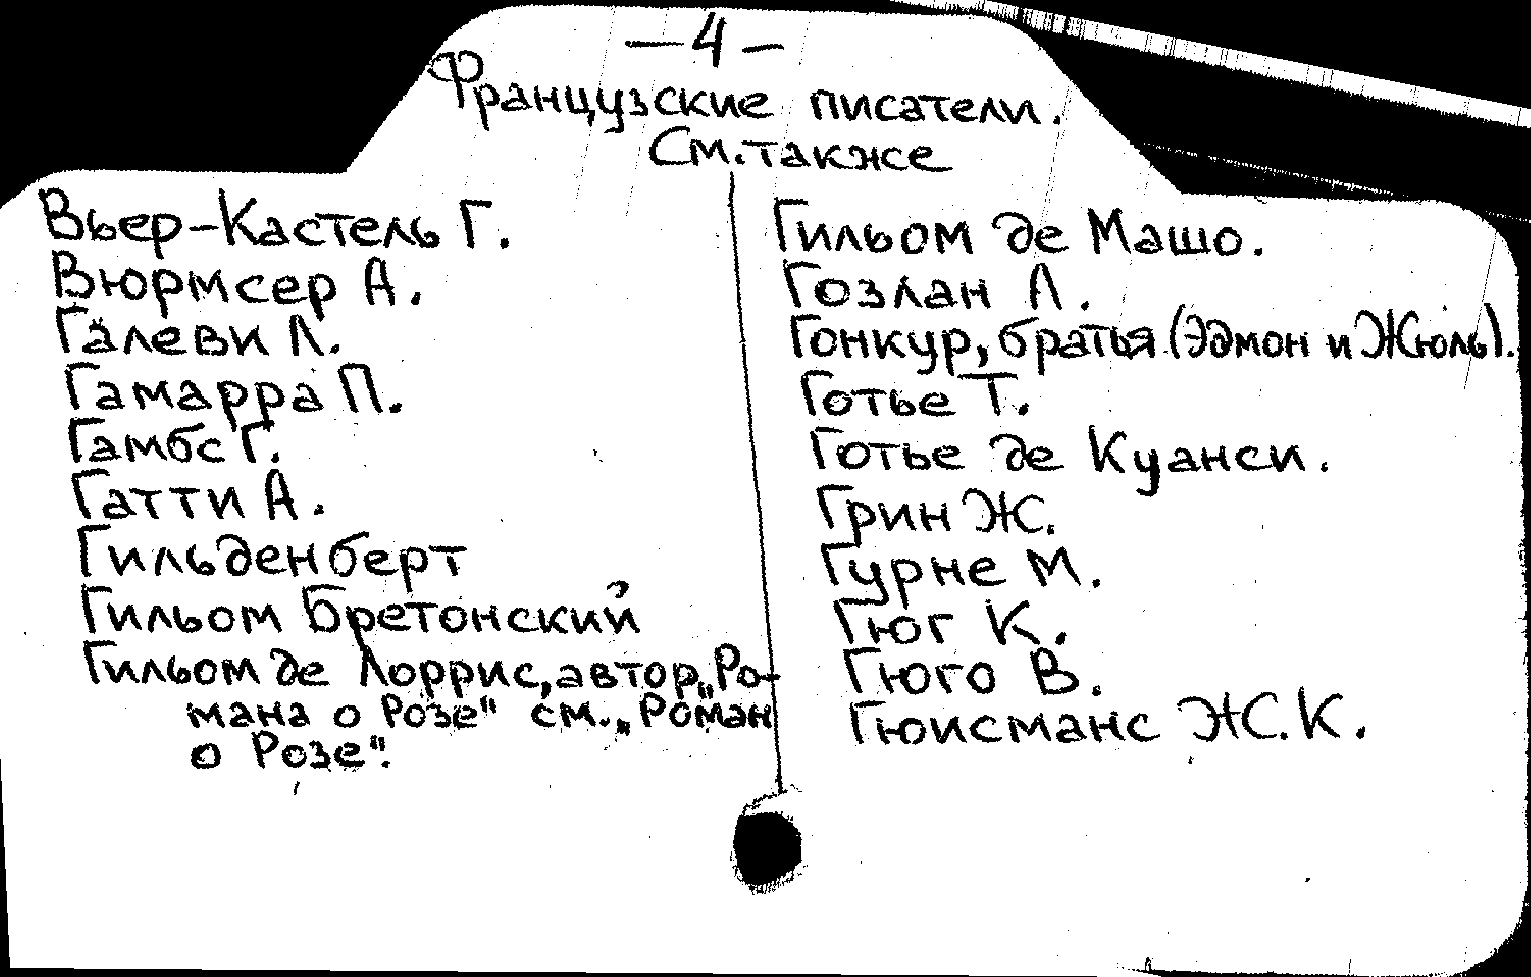 —4—
Французские писатели.
См. также
Вьер-Кастель Г.
Вюрмсер А.
Галеви Л.
Гамарра П.
Гамбс Г.
Гатти А.
Гильденберт
Гильом Бретонский
Гильом де Лоррис, автор „Ро-
мана о Розе" см. „Роман
о Розе".
Гильом де Машо.
Гозлан Л.
Гонкур, братья (Эдмон и Жюль).
Готье Т.
Готье де Куанси.
Грин Ж.
Гурне М.
Гюг К.
Гюго В.
Гюисманс Ж.К.